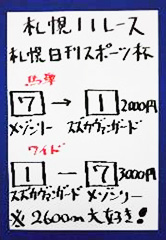 札幌11レース
札幌日刊スポーツ杯
馬単
7 → 1 2000円
メゾンリー スズカヴァンガード
ワイド
1 － 7 3000円
スズカヴァンガード メゾンリー
※2600m大好き!